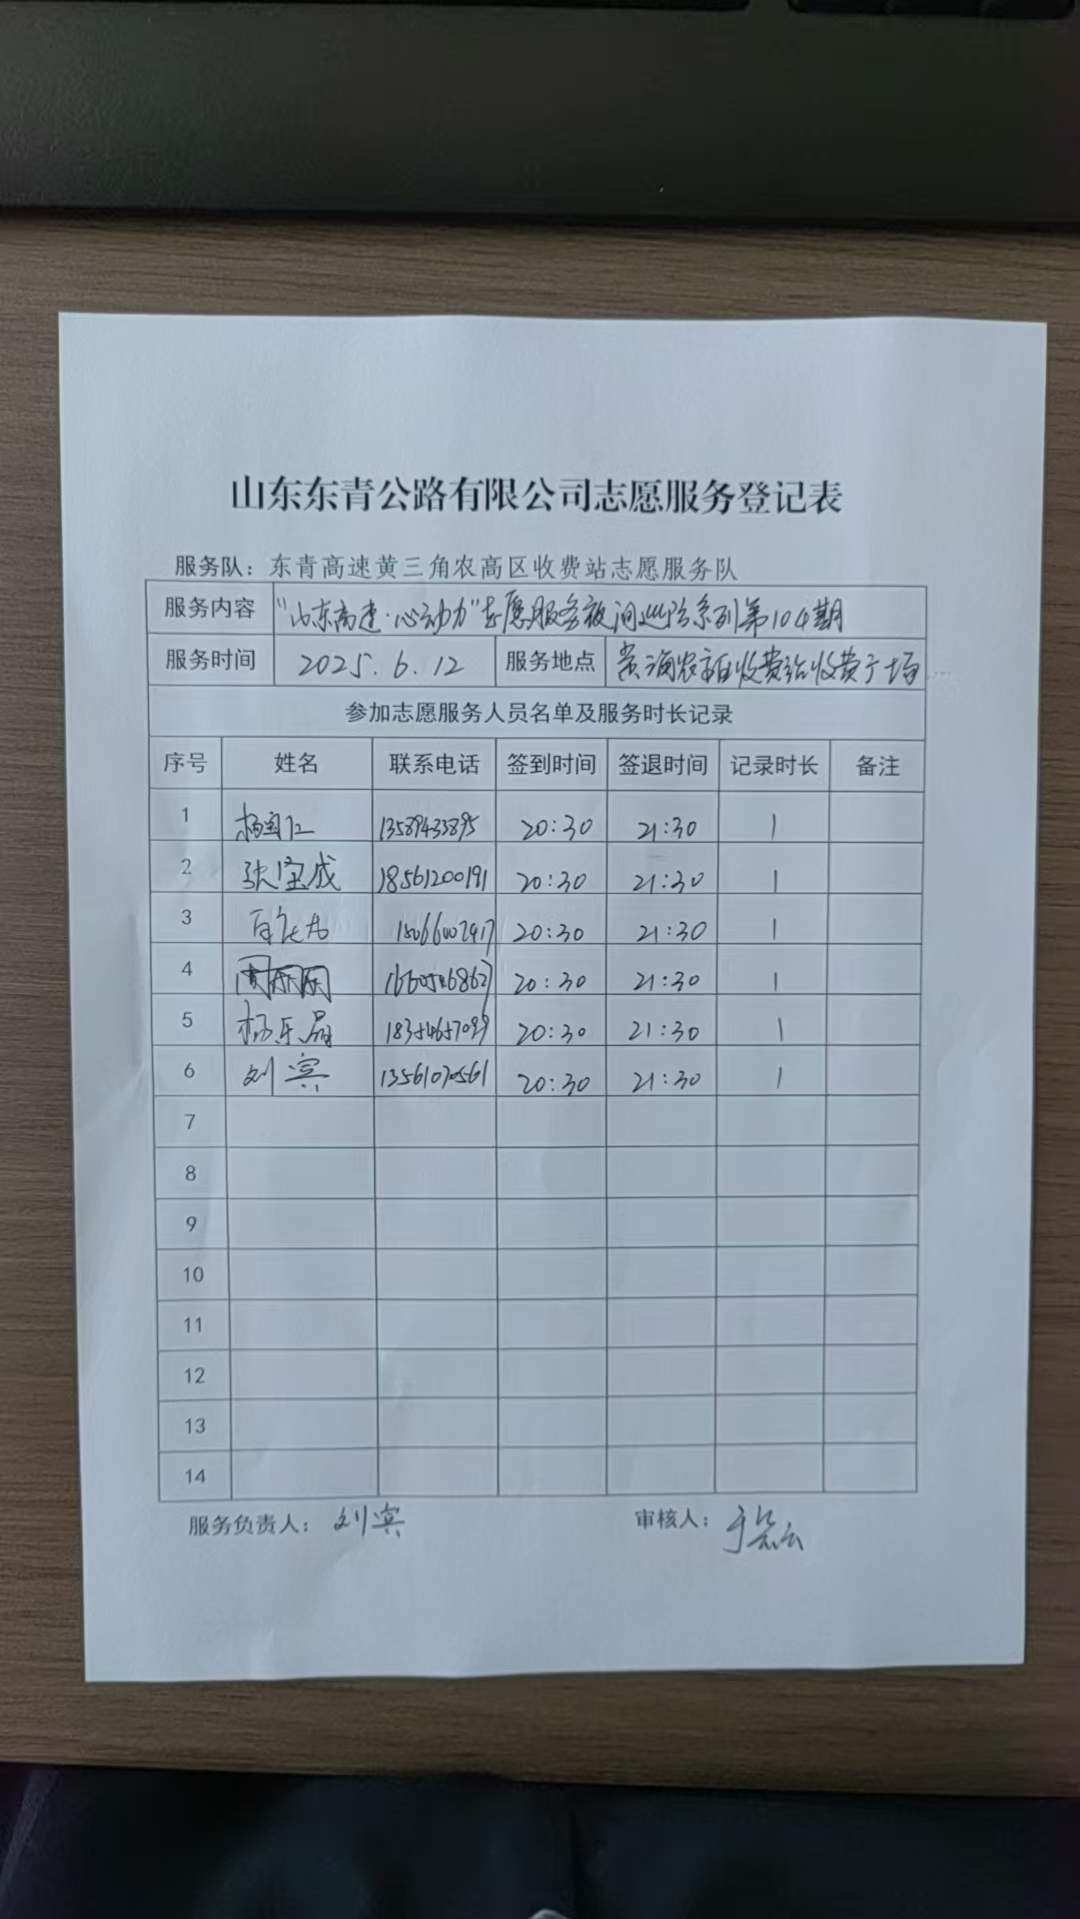 山东东青公路有限公司志愿服务登记表
服务队：东青高速黄三角农高区收费站志愿服务队
服务内容 "山东高速·心动力"志愿服务夜间巡路系列第104期
服务时间 2025.6.12 服务地点 收费站收费广场
参加志愿服务人员名单及服务时长记录
序号 姓名 联系电话 签到时间 签退时间 记录时长 备注
1 13589433895 20:30 21:30 1
2 张宝成 18561200191 20:30 21:30 1
3 20:30 21:30 1
4 20:30 21:30 1
5 杨乐晶 20:30 21:30 1
6 刘宾 13561070561 20:30 21:30 1
7
8
9
10
11
12
13
14
服务负责人：刘宾 审核人：